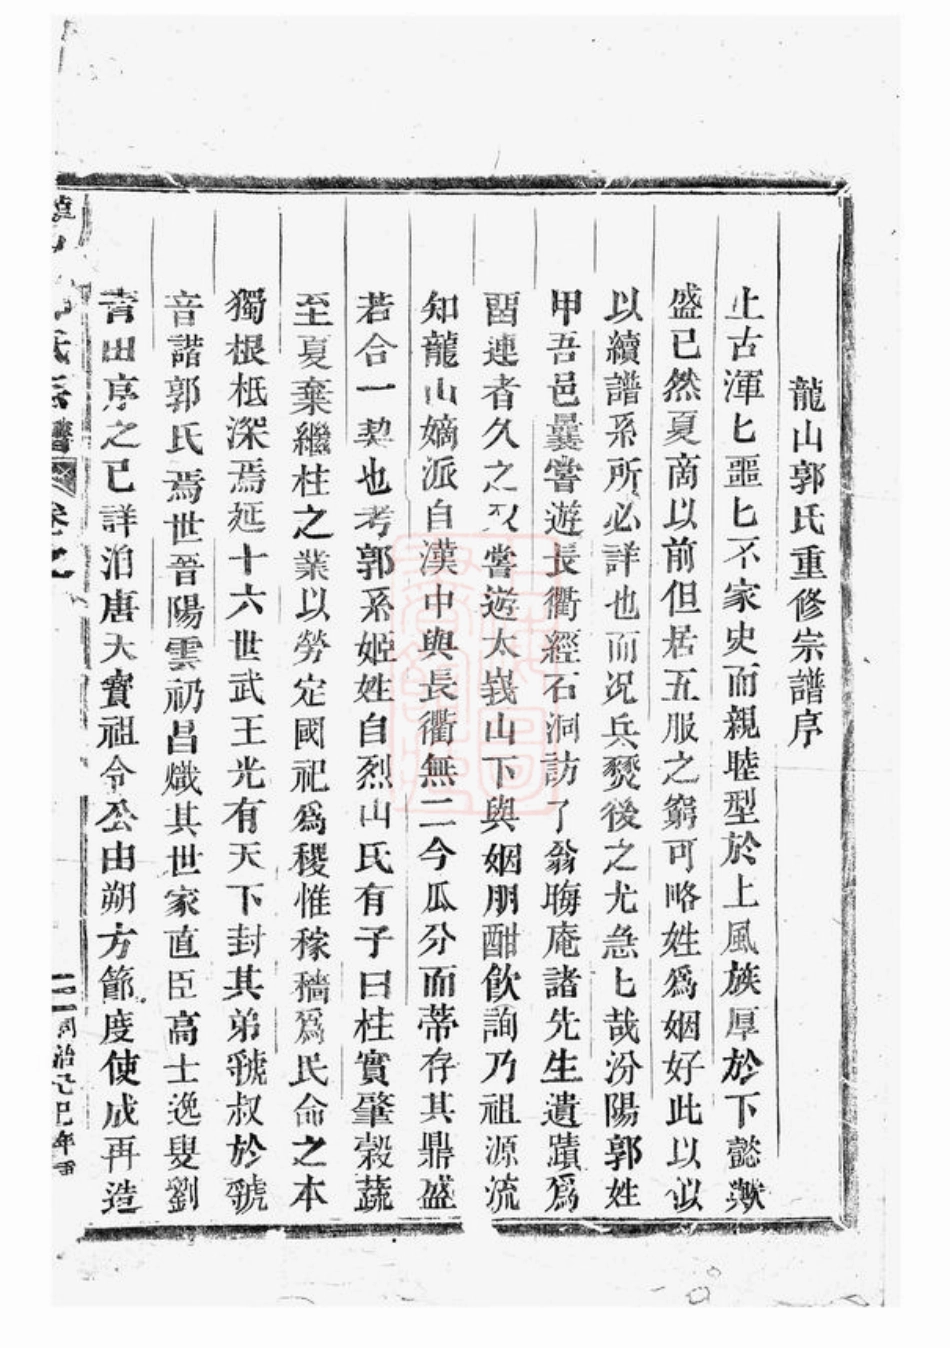 龍山郭氏重修宗譜序
上古渾匕噩匕不家史而親睦型於上風族厚於下懿歟
盛已然夏商以前但居五服之窮可略姓爲姻好此以
以續譜系所必詳也而况兵燹後之尤急匕哉汾陽郭姓
甲吾邑曩嘗遊長衢經石洞訪了翁晦庵諸先生遺蹟爲
畱連者久之又嘗遊太峩山下與姻朋酣飲詢乃祖源流
知龍山嫡派自漢中與長衢無二今瓜分而蒂存其鼎盛
若合一契也考郭系姬姓自烈山氏有子曰柱實肇穀蔬
至夏棄繼柱之業以勞定國祀爲稷惟稼穡爲民命之本
獨根柢深焉延十六世武王光有天下封其弟虢叔於虢
音諧郭氏焉世晉陽雲礽昌熾其世家直臣高士逸叟劉
青田序之已詳洎唐天寶祖令公由朔方節度使成再造
氏宗譜 卷之 二 同治己巳年